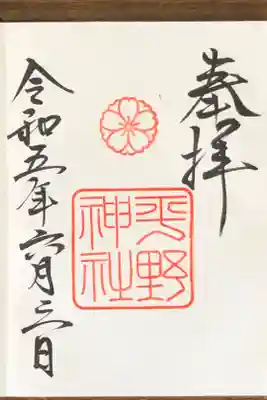 奉拝
平野
神社
令和五年六月三日